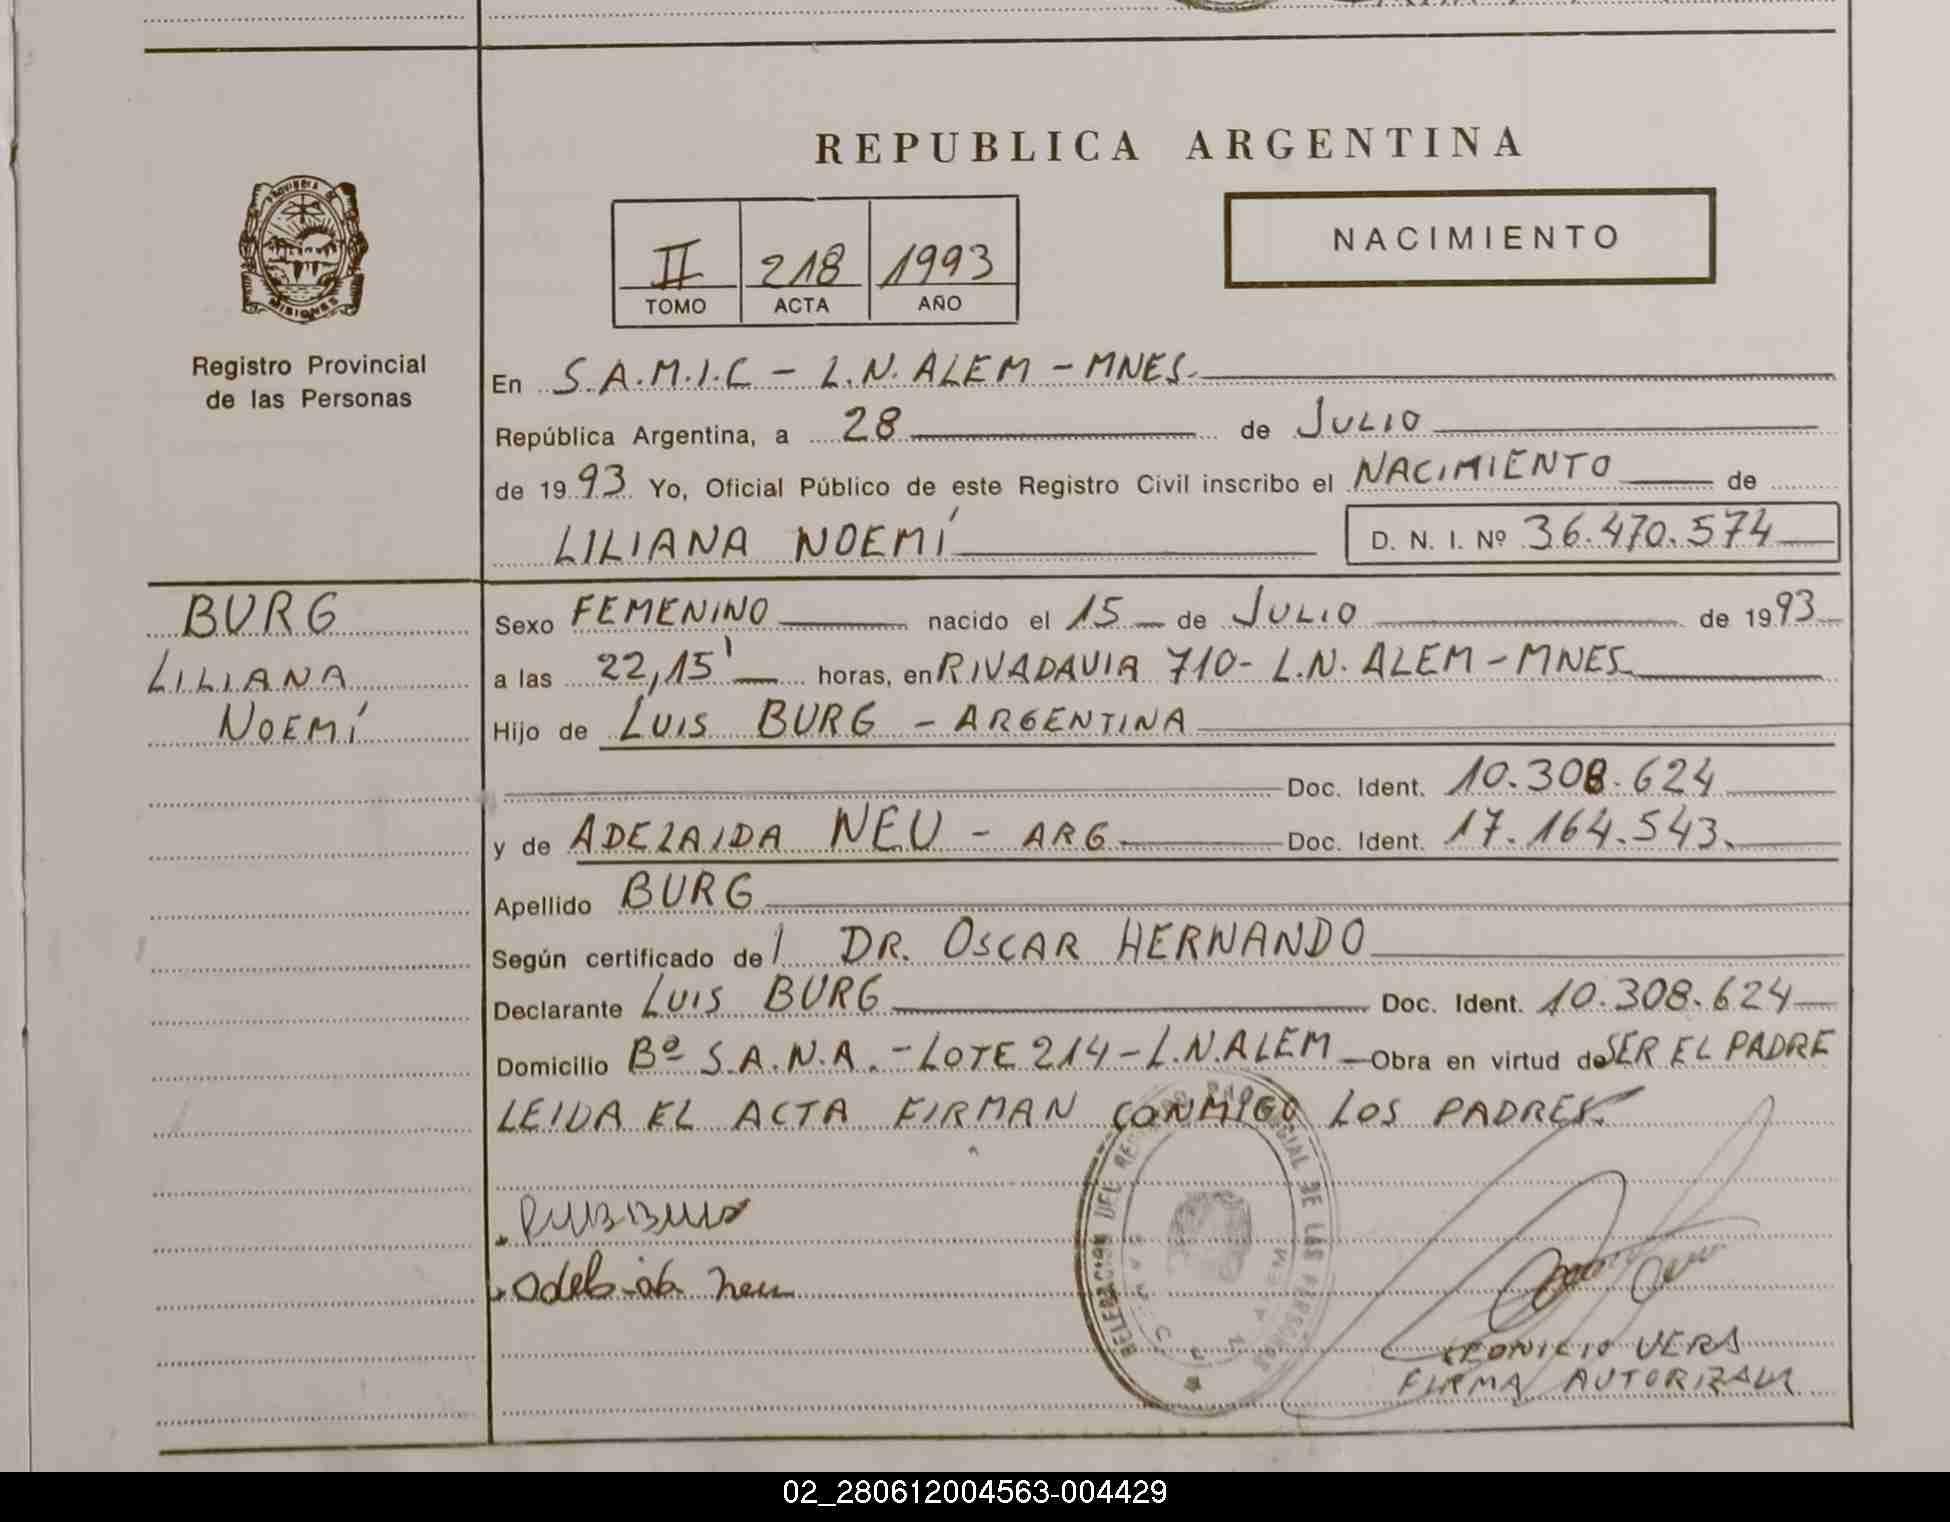 REPUBLICA ARGENTINA
PROVINCIA DE
MISIONES
Registro Provincial
de las Personas
II 218 1993
TOMO ACTA AÑO
NACIMIENTO
En S.A.M.I.C - L.N. ALEM - MNES.
República Argentina, a 28 de JULIO
de 1993 Yo, Oficial Público de este Registro Civil inscribo el NACIMIENTO de
LILIANA NOEMÍ D. N. I. Nº 36.470.574
BURG
LILIANA
NOEMÍ
Sexo FEMENINO nacido el 15 de JULIO de 1993
a las 22,15' horas, en RIVADAVIA 710- L.N. ALEM - MNES.
Hijo de LUIS BURG - ARGENTINA
Doc. Ident. 10.308.624
y de ADELAIDA NEU - ARG Doc. Ident. 17.164.543.
Apellido BURG
Según certificado del DR. OSCAR HERNANDO
Declarante LUIS BURG Doc. Ident. 10.308.624
Domicilio Bº S.A.N.A. - LOTE 214 - L.N.ALEM Obra en virtud de SER EL PADRE
LEIDA EL ACTA FIRMAN CONMIGO LOS PADRES.
DEL DE LAS PERSONAS
VERA
FIRMA
02_280612004563-004429